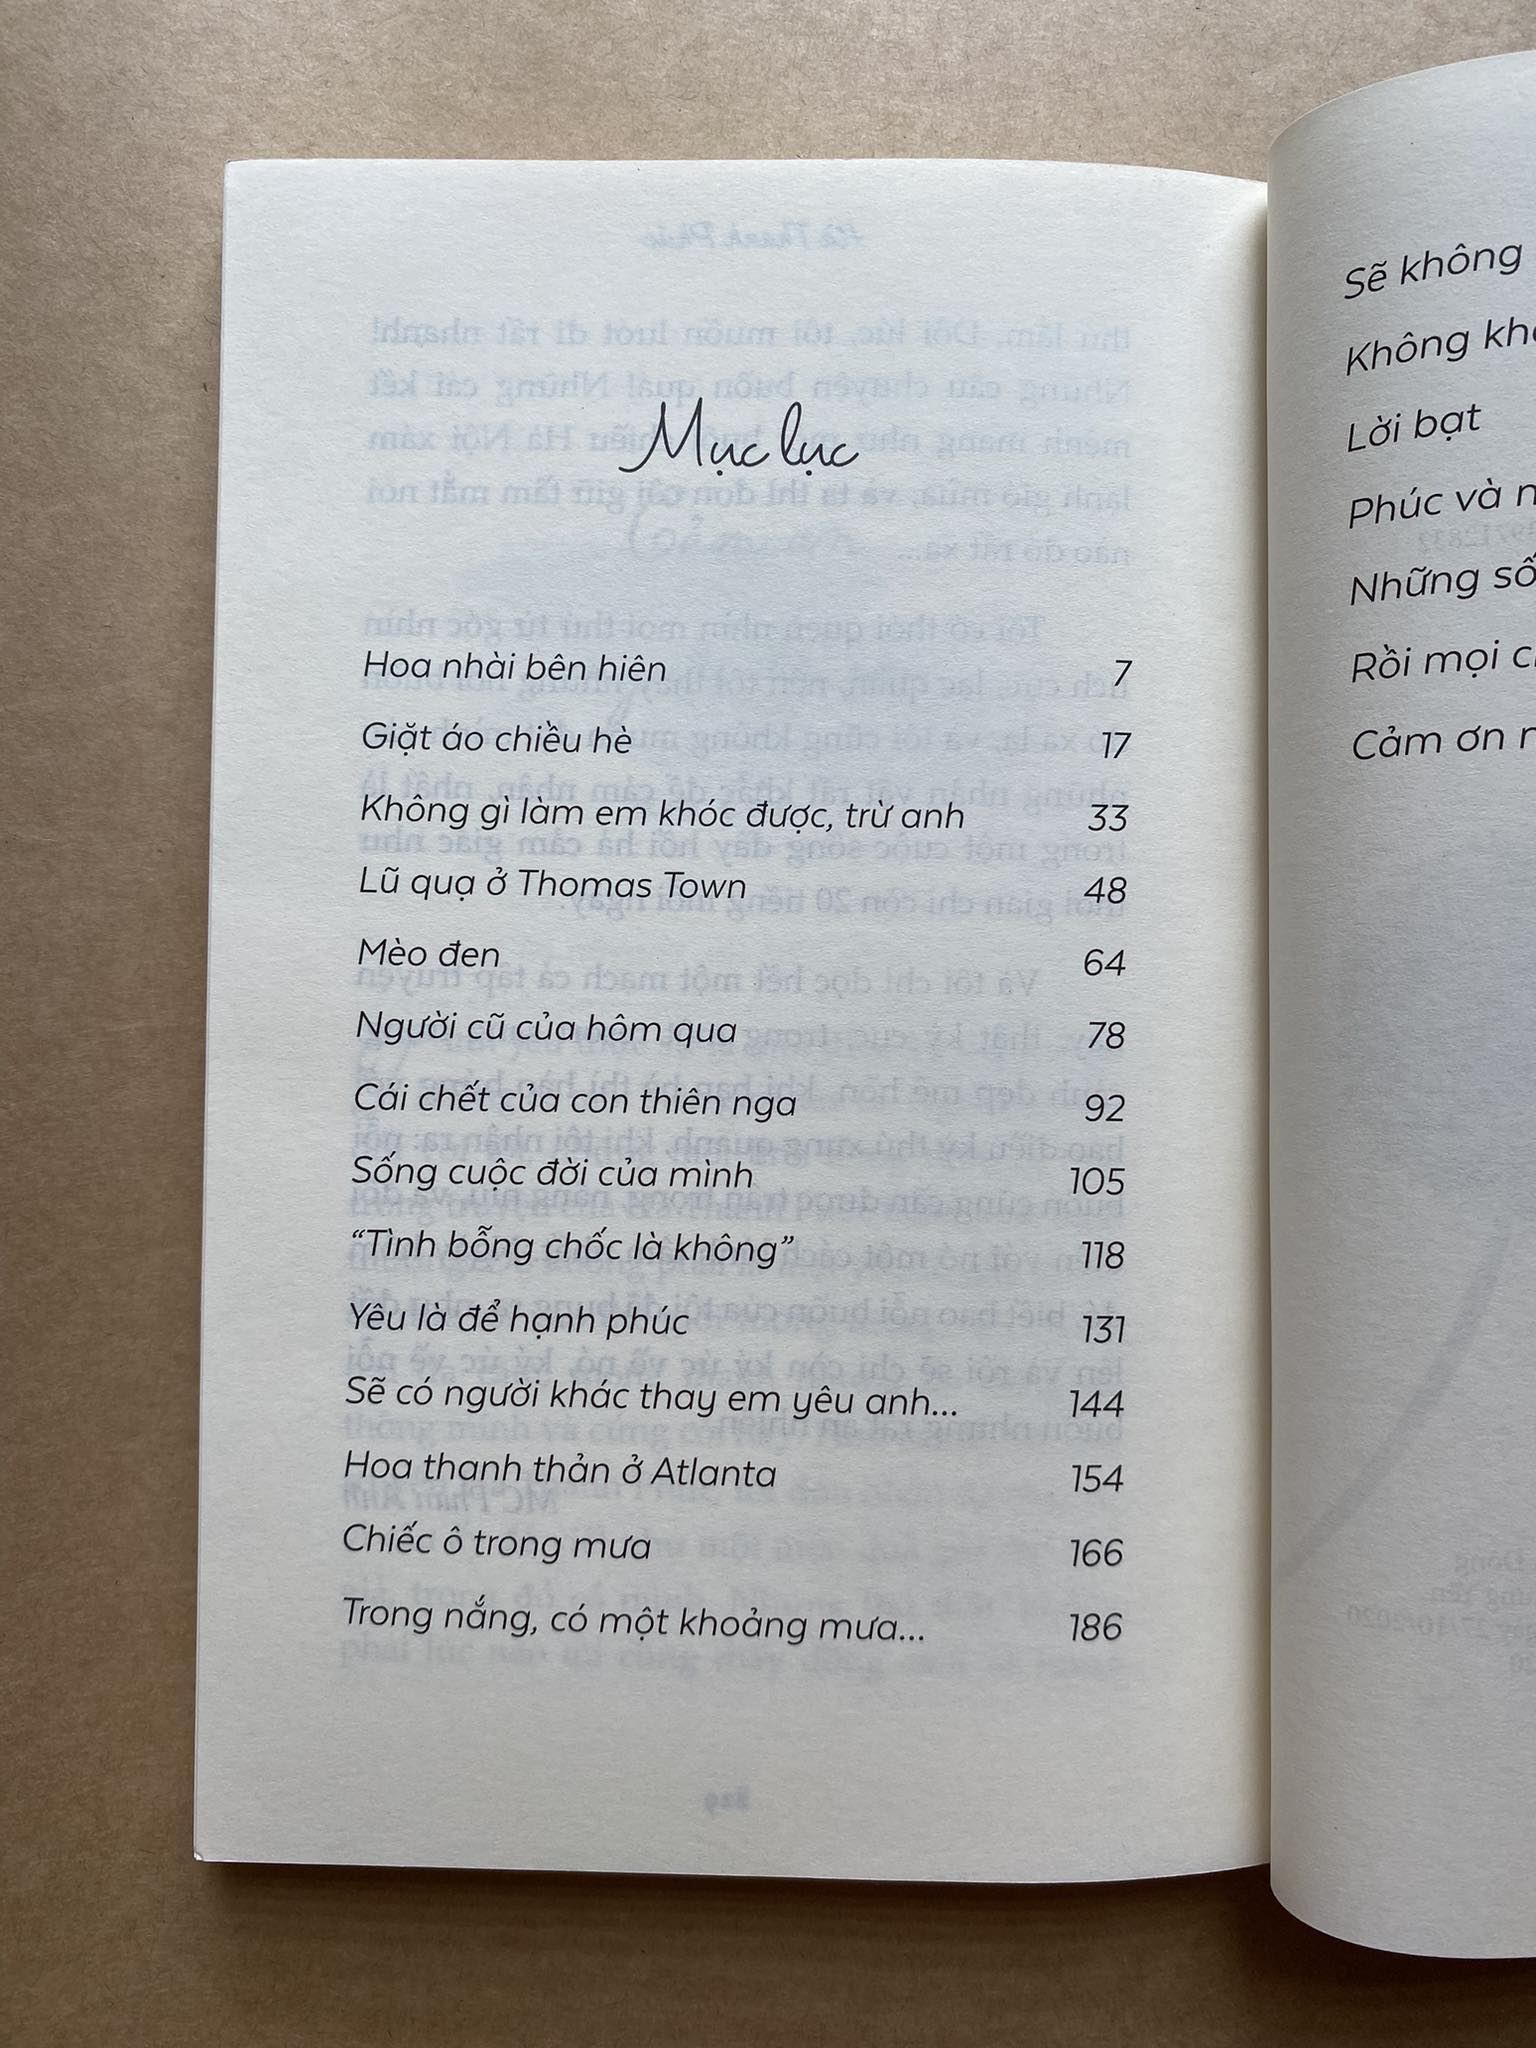 Mục lục
Hoa nhài bên hiên 7
Giặt áo chiều hè 17
Không gì làm em khóc được, trừ anh 33
Lũ quạ ở Thomas Town 48
Mèo đen 64
Người cũ của hôm qua 78
Cái chết của con thiên nga 92
Sống cuộc đời của mình 105
“Tình bỗng chốc là không” 118
Yêu là để hạnh phúc 131
Sẽ có người khác thay em yêu anh... 144
Hoa thanh thản ở Atlanta 154
Chiếc ô trong mưa 166
Trong nắng, có một khoảng mưa... 186
Sẽ không
Không
Lời bạt
Phúc và
Những
Rồi mọi
Cảm ơn